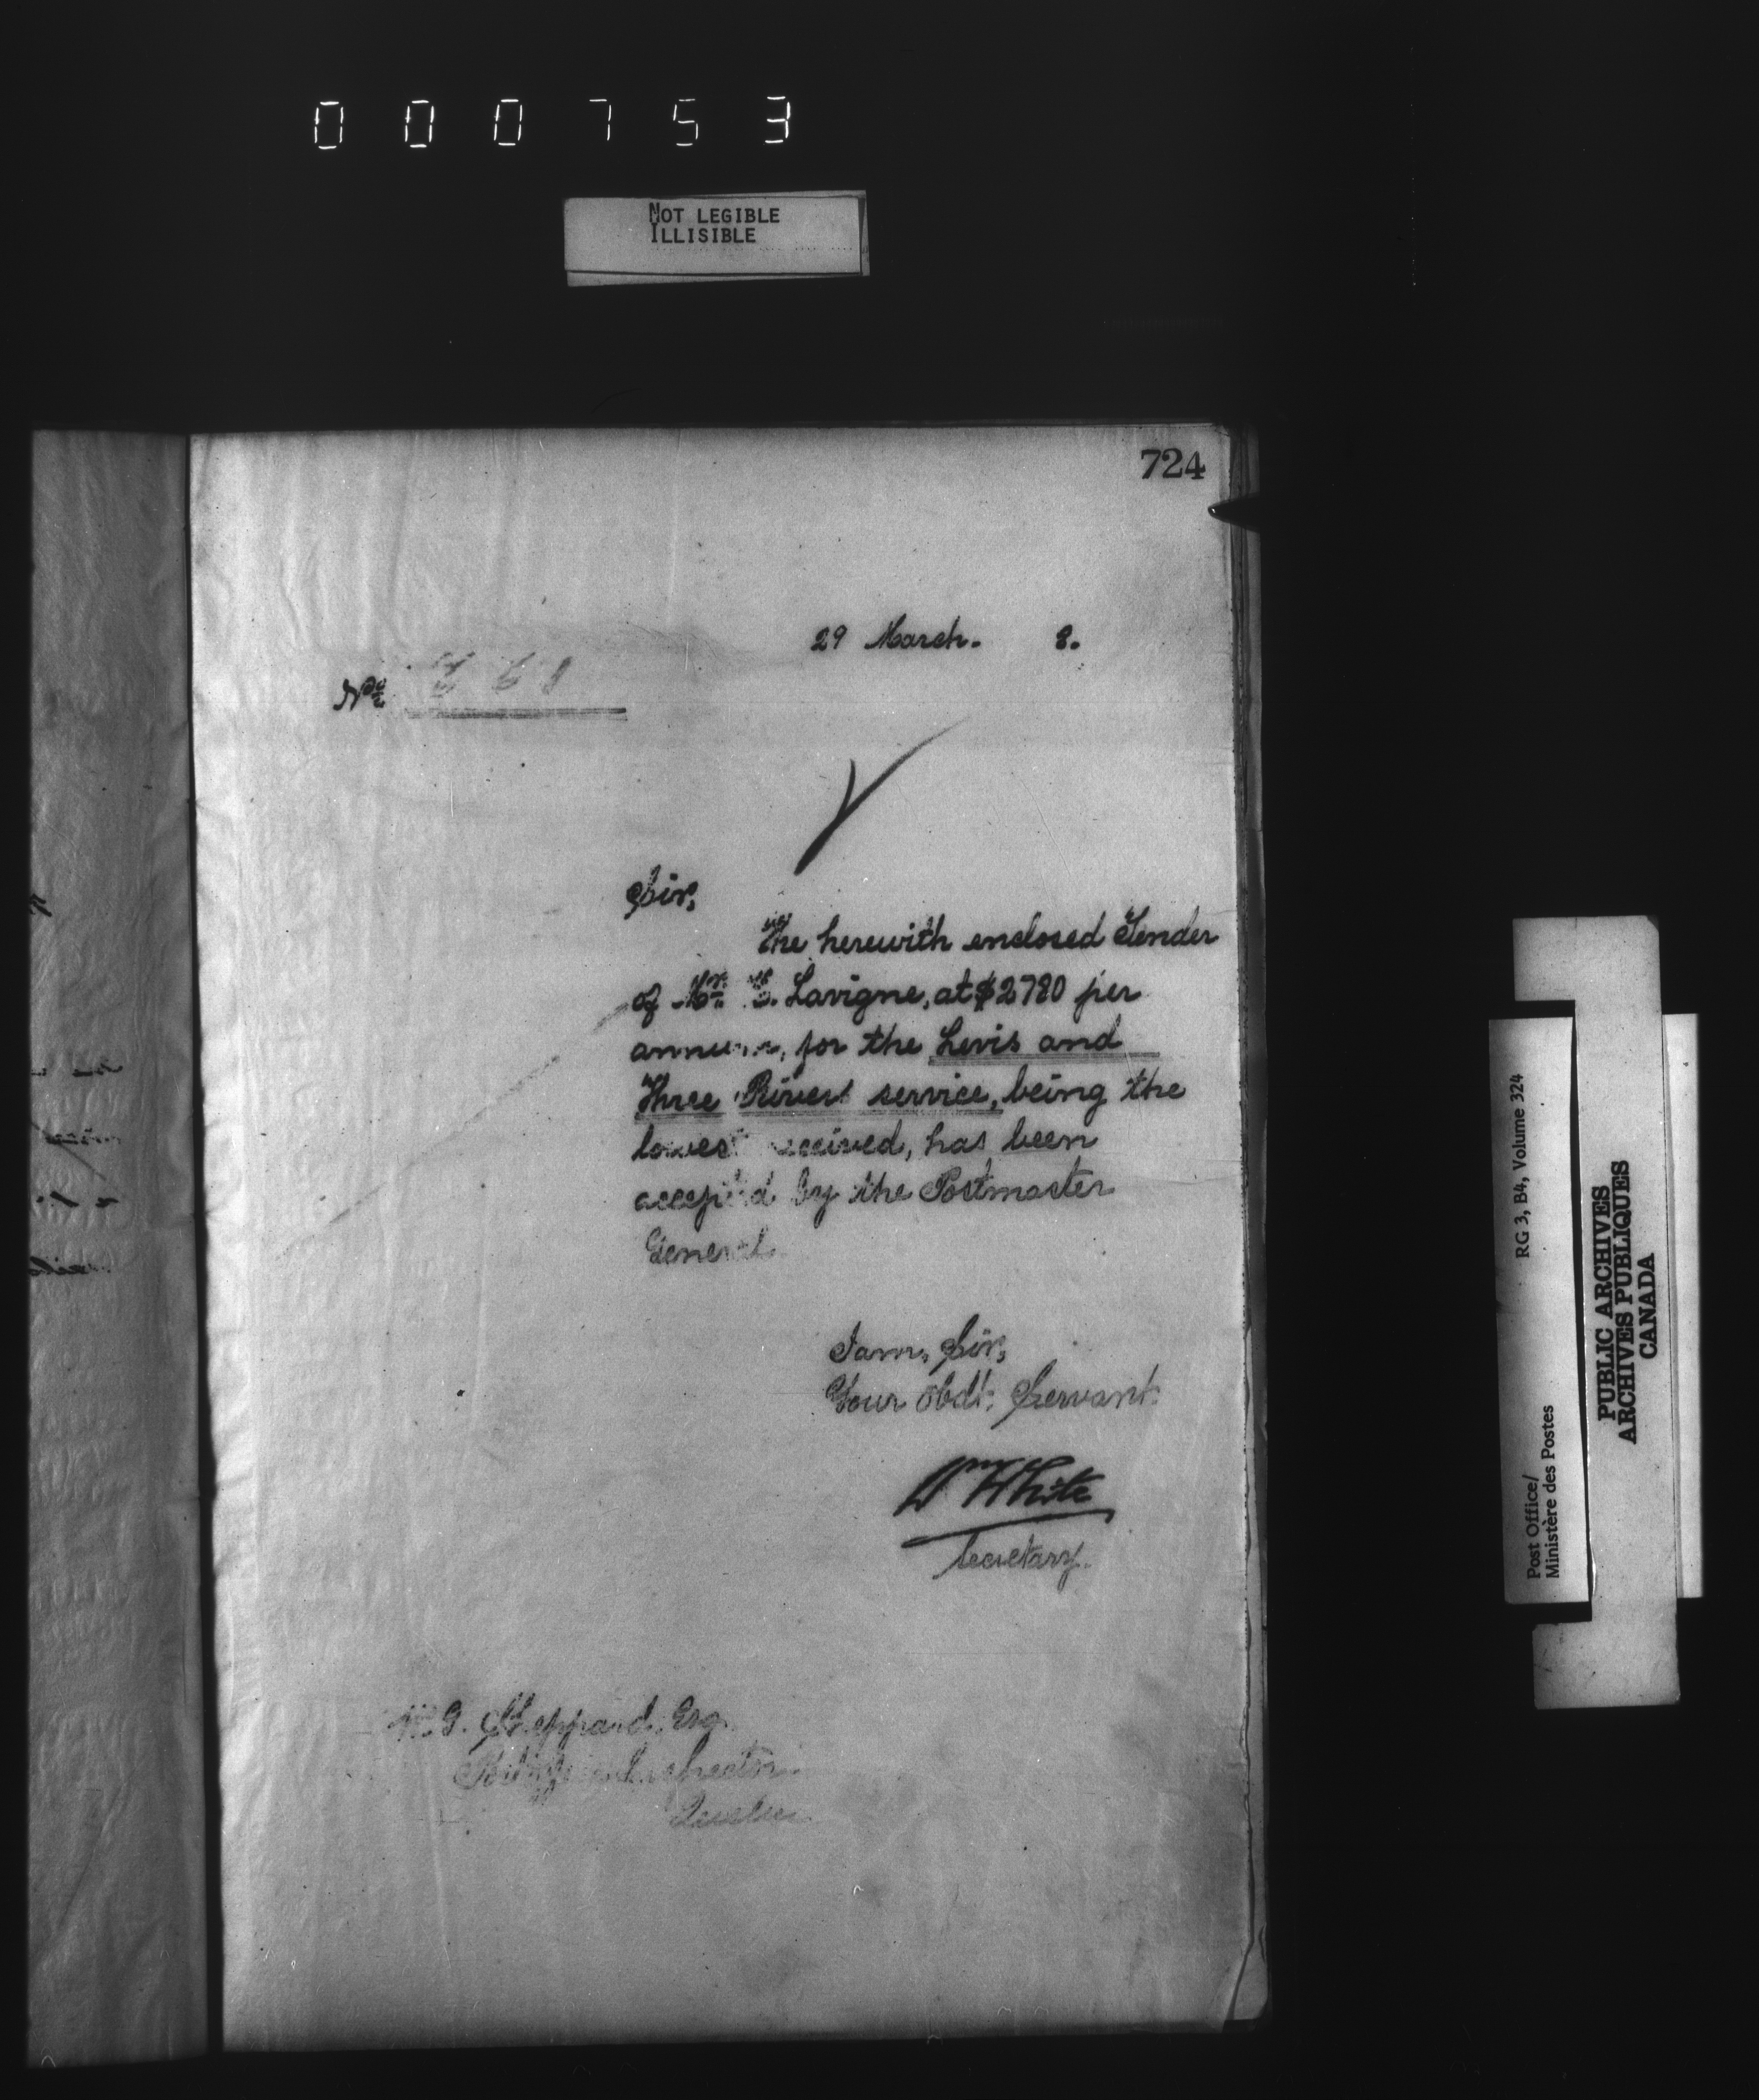 000753
NOT LEGIBLE
ILLISIBLE
724
29 March. 8.
No.
Sir,
The herewith enclosed Tender
of Mr. Lavigne, at $2780 per
annum, for the Levis and
Three Rivers service, being the
lowest received, has been
accepted by the Postmaster
General.
I am, Sir,
Your Obdt. Servant.
Wm White
Secretary.
W. G. Sheppard, Esq.
Inspector
Quebec
RG 3, B4, Volume 324
Post Office/
Ministère des Postes
PUBLIC ARCHIVES
ARCHIVES PUBLIQUES
CANADA